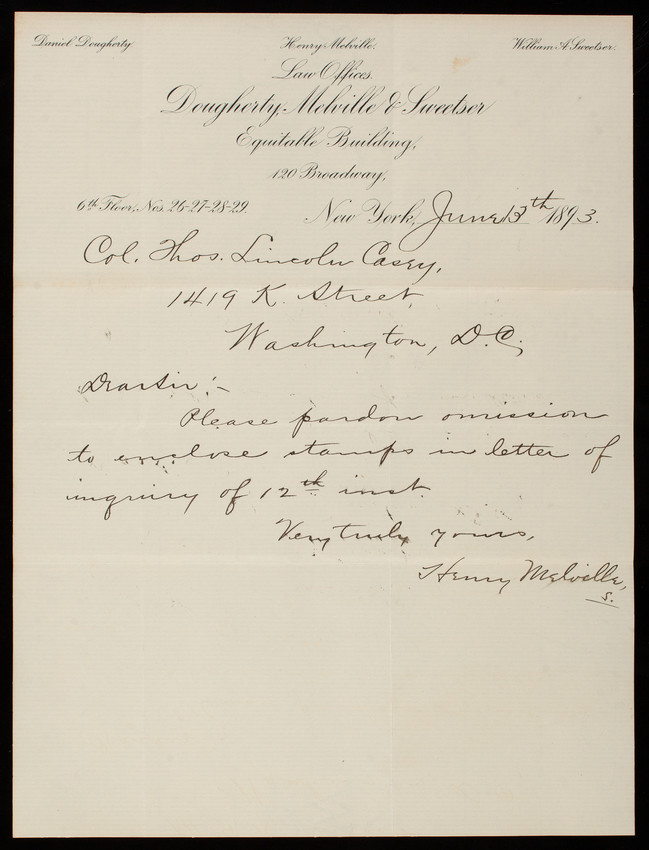 Daniel Dougherty. Henry Melville. William A. Sweetser.
Law Offices.
Dougherty, Melville & Sweetser
Equitable Building,
120 Broadway,
6th Floor, Nos. 26-27-28-29. New York, June 13th 1893.
Col. Thos. Lincoln Casey,
1419 K. Street,
Washington, D.C.
Dear Sir:-
Please pardon omission
to enclose stamps in letter of
inquiry of 12th inst.
Very truly yours,
Henry Melville,
S.